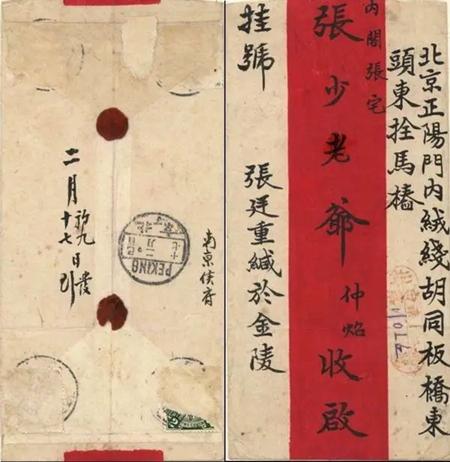 北京正陽門內絨綫胡同板橋東
頭東拴馬樁
內閣張宅
張少老爺仲焰收啟
挂號
張廷重緘於金陵
南京侯府
PEKING
二月
初九日發
十七